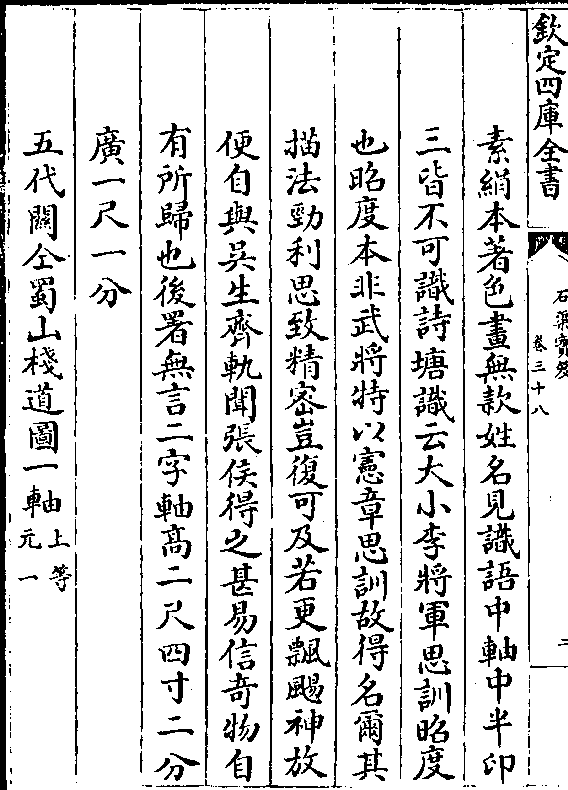 欽定四庫全書
石渠寶笈
卷三十八
二
素絹本著色畫無款姓名見識語中軸中半印
三皆不可識詩塘識云大小李將軍思訓昭度
也昭度本非武將特以憲章思訓故得名爾其
描法勁利思致精密豈復可及若更飄颺神放
便自與吳生齊軌聞張侯得之甚易信奇物自
有所歸也後署無言二字軸高二尺四寸二分
廣一尺一分
五代關仝蜀山棧道圖一軸上等元一